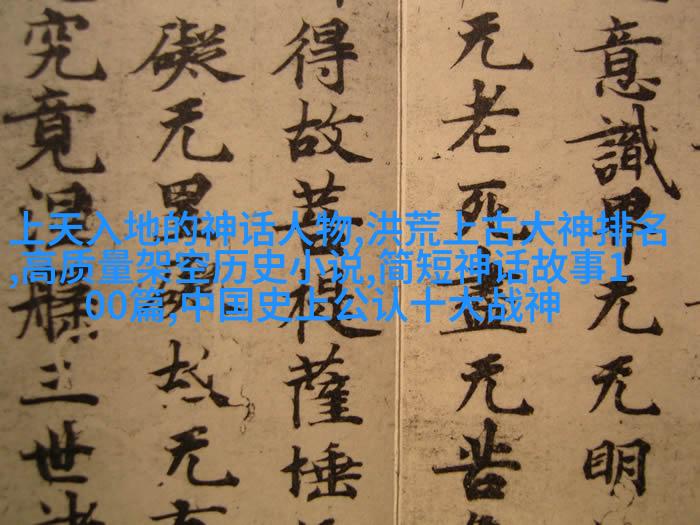 意識界无无明
无老死盡无苦
得故菩提薩埵
礙无罣礙故无有
究竟涅槃三世諸
上天入地的神话人物,洪荒上古大神排名
,高质量架空历史小说,简短神话故事1
00篇,中国史上公认十大战神